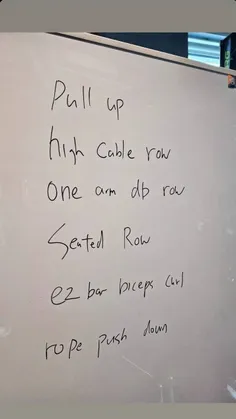 Pull up
high cable row
One arm db row
Seated Row
ez bar biceps curl
rope push down